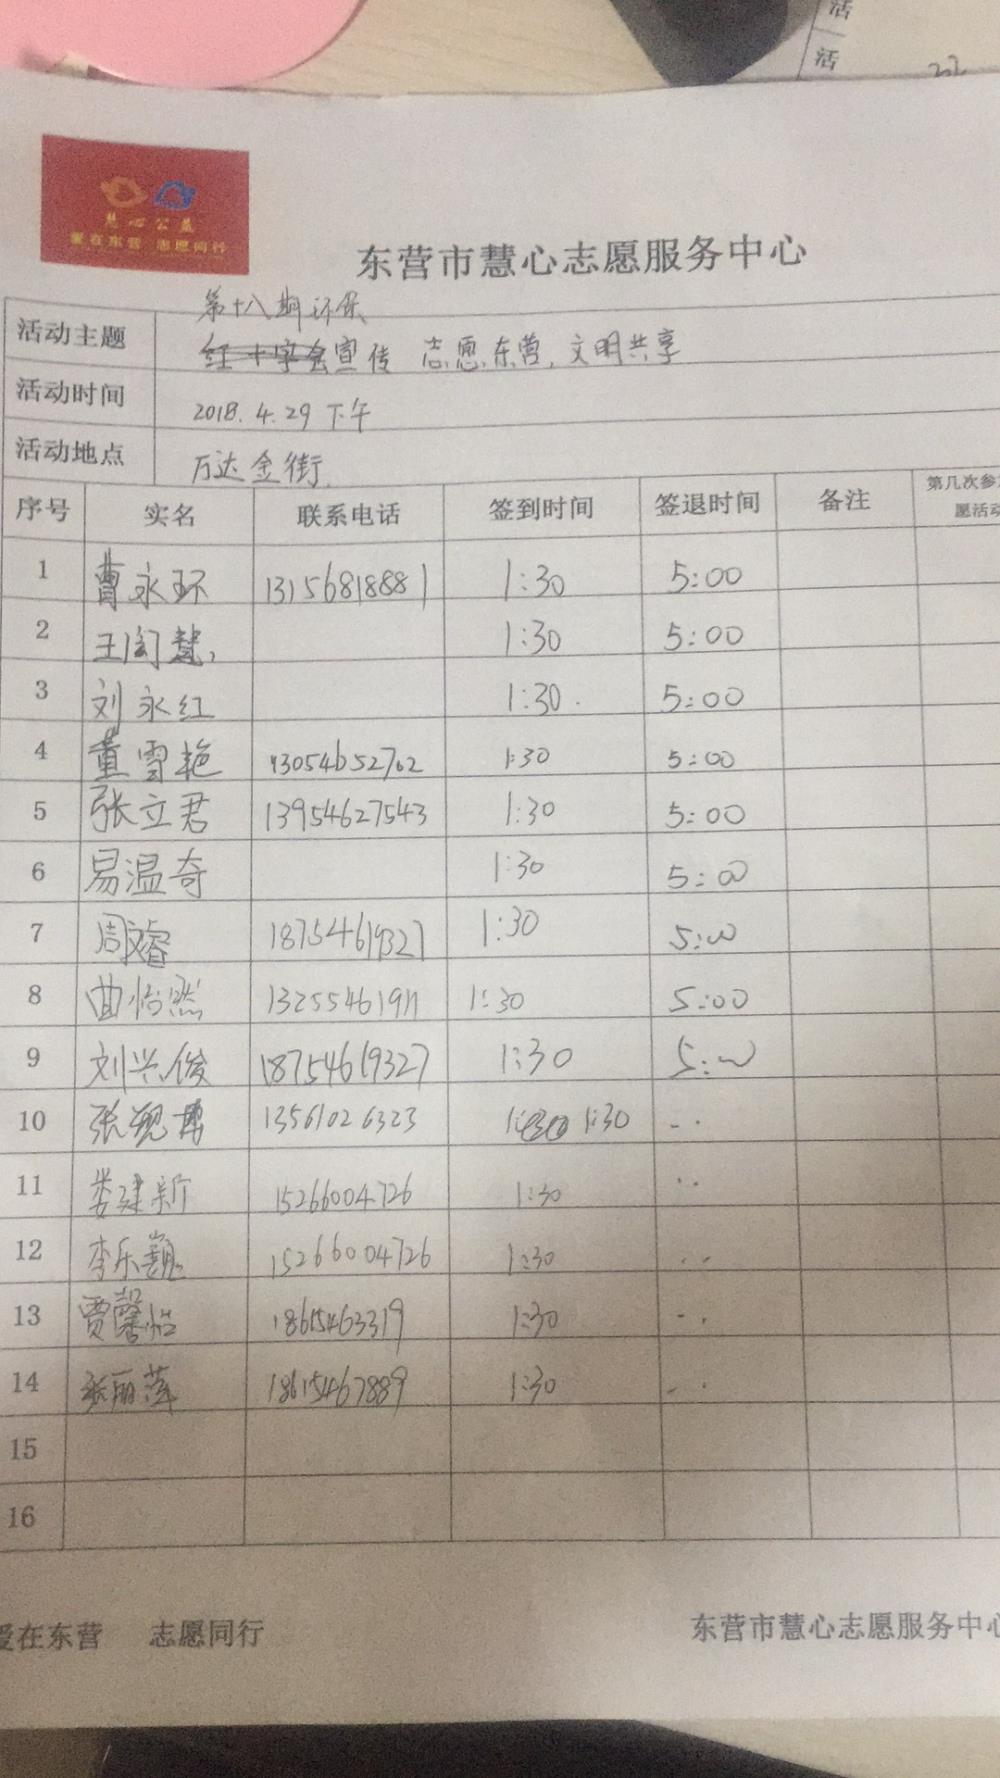 活
活
慧心公益
爱在东营 志愿同行
东营市慧心志愿服务中心
第十八期环保
活动主题 红十字会宣传 志愿东营,文明共享
活动时间 2018.4.29下午
活动地点 万达金街
序号 实名 联系电话 签到时间 签退时间 备注 第几次参
愿活动
1 曹永环 13156818881 1:30 5:00
2 王 慧 1:30 5:00
3 刘永红 1:30 5:00
4 董雪艳 13054652702 1:30 5:00
5 张立君 13954627543 1:30 5:00
6 易温奇 1:30 5:00
7 周睿 18754619327 1:30 5:00
8 曲怡然 13255461911 1:30 5:00
9 刘兴俊 18754619327 1:30 5:00
10 张 博 13561026323 1:30
11 娄建新 15266004726 1:30
12 李乐巍 15266004726 1:30
13 贾馨怡 18615463319 1:30
14 张丽萍 18615467889 1:30
15
16
爱在东营 志愿同行 东营市慧心志愿服务中心